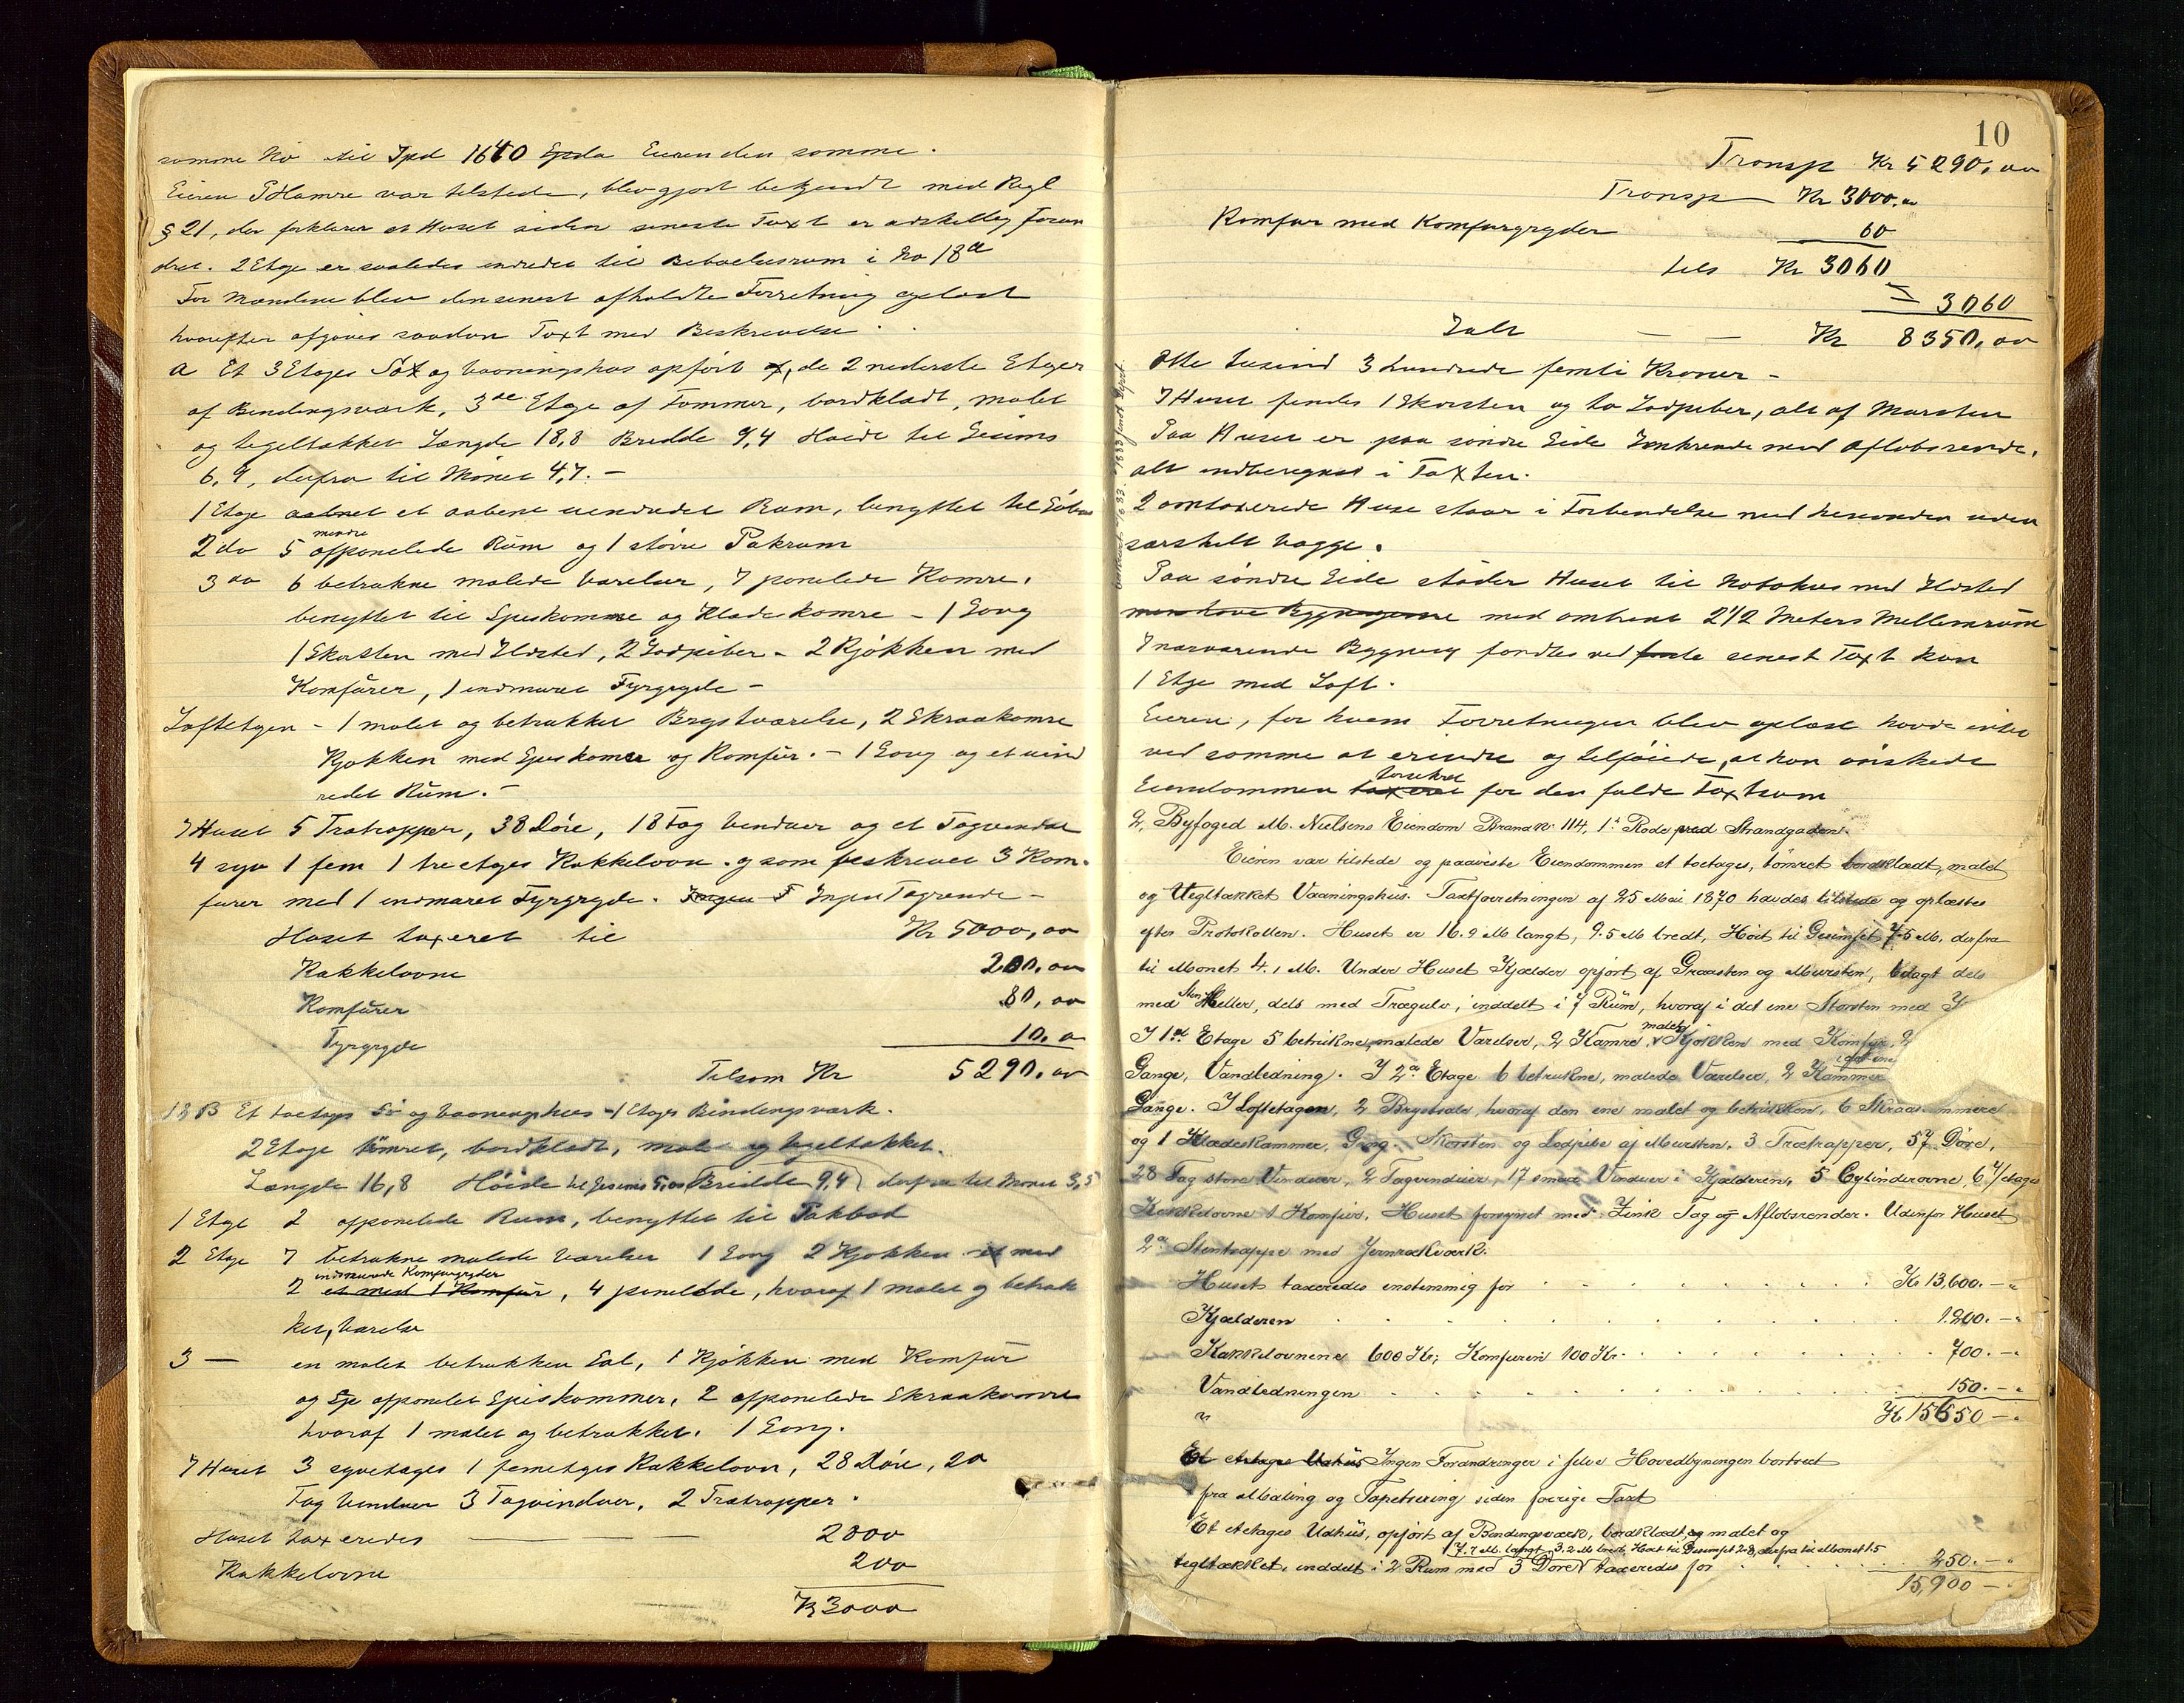 samme No til Spd 1640 Spda Eieren den samme.
Eieren S Hamre var tilstede, blev gjort bekjendt med Regl
§ 21, der forklarer at Huset siden seneste Taxt er adskillig foran
dret. 2 Etage er saaledes indredet til Beboelsesrum i No 18a
For Mændene blev den senest afholdte Forretning oplæst
hvorefter afgives saadan Taxt med Beskrivelse.
a Et 3 Etages Sø og Vaaningshus opført af, de 2 nederste Etager
af Bindingsværk, 3die Etage af Tømmer, bordklædt, malet
og tegeltækket Længde 18,8 Bredde 9,4 Høide til Gesims
6,9, derfra til Mønet 4,7. –
1 Etage aabnet et aabent uindredet Rum, benyttet til Søbod
2 do 5 mindre afpanelede Rum og 1 større Pakrum
3 do 6 betrukne malede Værelser, 7 panelede Kamre.
benyttet til Speiskamre og Klædekamre – 1 Gang
1 Skorsten med Ildsted, 2 Lodpiber – 2 Kjøkken med
Komfurer, 1 indmuret Fyrgryde –
Loftetagen – 1 malet og betrukket Brystværelse, 2 Skraakamre
Kjøkken med Speiskamre og Komfur. – 1 Gang og et uind
redet Rum. –
I Huset 5 Trætrapper, 38 Døre, 18 Fag Vinduer og et Tagvindue
4 syv 1 fem 1 treetages Kakkelovn og som beskrevet 3 Kom-
furer med 1 indmuret Fyrgryde. Ingen Tagrende –
Huset taxeret til Kr 5000,00
Kakkelovne 200,00
Komfurer 80,00
Fyrgryde 10,0
Tilsam Kr 5290,00
18 B Et toetages Sø og Vaaningshus – 1 Etage Bindingsværk.
2 Etage tømret, bordklædt, malet og tegeltækket.
Længde 16,8 Høide til Gesims Bredde 9,4 derfra til Mønet 3,5
1 Etage 2 afpanelede Rum, benyttet til Pakbod
2 Etage 7 betrukne malede Værelser 1 Gang 2 Kjøkken med
2 indmurede Komfurgryder et med 1 Komfur, 4 panelede, hvoraf 1 malet og betruk
ket, Værelse
3 — en malet betrukken Sal, 1 Kjøkken med Komfur
og afpanelet Speiskammer, 2 afpanelede Skraakamre
hvoraf 1 malet og betrukket. 1 Gang.
I Huset 3 syvetages 1 femetages Kakkelovn, 28 Døre, 20
Fag Vinduer 3 Tagvinduer, 2 Trætrapper.
Huset taxeredes — 2800
Kakkelovne 200
Kr 3000
10
Transp Kr 5290,00
Transp Kr 3000,00
Komfur med Komfurgryder 60
tils Kr 3060
= 3060
Ialt — — Kr 8350,00
Otte tusind 3 hundrede femti Kroner –
I Huset findes 1 Skorsten og to Lodpiber, alt af Mursten
Paa Huset er paa søndre Side Zinkrende med Afløbsrende,
alt indberegnet i Taxten.
2 omtaxerede Huse staar i Forbindelse med hinanden uden
særskilt Vægge.
Paa søndre Side støder Huset til Nabohus med Ildsted
med omtrent 2 1/2 Meters Mellemrum
I nærværende Bygning fandtes ved senest Taxt kun
1 Etage med Loft.
Eieren, for hvem Forretningen blev oplæst havde intet
ved samme at erindre og tilføiede, at han ønskede
Eiendommen taxeret forsikret for den fulde Taxtsum
2, Byfoged M. Nielsens Eiendom Brandk: 114, 1ste Rode ved Strandgaden.
Eieren var tilstede og paaviste Eiendommen et toetages, tømret bordklædt, malet
og Tegltækket Vaaningshus. Taxtforretningen af 25 Mai 1870 havdes tilstede og oplæstes
efter Protokollen. Huset er 16.9 M langt, 9.5 M bredt, Høit til Gesimset 7.5 M, derfra
til Mønet 4.1 M. Under Huset Kjælder opført af Graasten og Mursten, belagt dels
med Sten Heller, dels med Trægulv, inddelt i 7 Rum, hvoraf i det ene Skorsten med
I 1ste Etage 5 betrukne, malede Værelser, 2 Kamre, malet Kjøkken med Komfur, 2
Gange, Vandledning. I 2den Etage 6 betrukne, malede Værelser, 2 Kammer
Gange. I Loftetagen, 2 Brystsale, hvoraf den ene malet og betrukken, 6 Skraakammere
og 1 Klædeskammer, Gang. Skorsten og Lodpibe af Mursten. 3 Trætrapper, 57 Døre,
28 Fag store Vinduer, 2 Tagvinduer, 17 smaa Vinduer i Kjælderen, 5 Cylinderovne, 6 4/etages
Kakkelovne 1 Komfur. Huset forsynet med Zink Tag og Afløbsrender. Udenfor Huset
2de Stentrappe med Jernrækværk.
Huset taxeredes enstemmig for Kr 13,600. –
Kjælderen 1.200. –
Kakkelovnene 600 Kr; Komfuren 100 Kr. 700. –
Vandledningen 150. –
Kr 15650 –
Et etages Udhus Ingen Forandringer i selve Hovedbygningen bortseet
fra Maling og Tapetsering siden forrige Taxt
Et etages Udhus, opført af Bindingsværk, bordklædt, og malet og
7.7 M. langt 3.2 M bredt, Høit til Gesimset 2.8, derfra til Mønet 1.5
tegltækket, inddelt i 2 Rum med 3 Døre taxeredes for 250. –
15,900 –